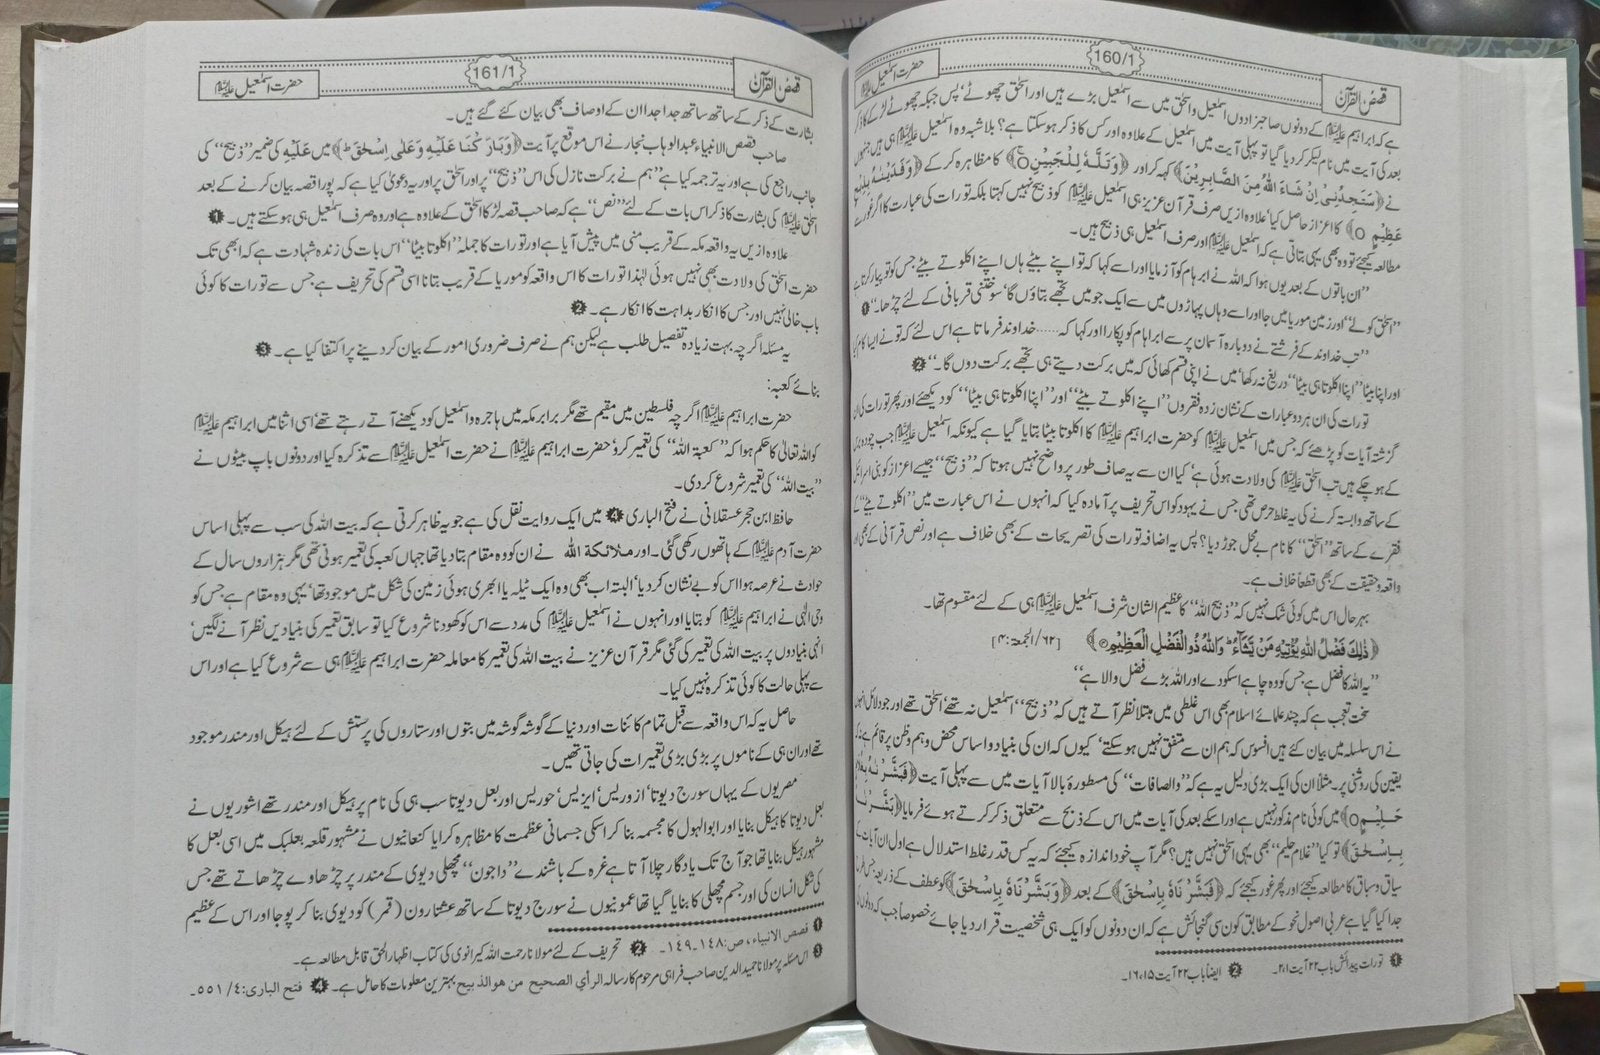 قصص القرآن
160/1
حضرت اسمٰعیل علیہ السلام
ہے کہ ابراہیم علیہ السلام کے دونوں صاحبزادوں اسمٰعیل و اسحٰق میں سے اسمٰعیل بڑے ہیں اور اسحٰق چھوٹے‘ پس جبکہ چھوٹے لڑکے کا ذکر
بعد کی آیت میں نام لیکر کر دیا گیا تو پہلی آیت میں اسمٰعیل کے علاوہ اور کس کا ذکر ہو سکتا ہے؟ بلا شبہ وہ اسمٰعیل علیہ السلام ہی ہیں جنہوں
نے ﴿سَتَجِدُنِیْ اِنْ شَاءَ اللّٰہُ مِنَ الصَّابِرِیْنَ﴾ کہہ کر اور ﴿وَتَلَّہٗ لِلْجَبِیْنِ﴾ کا مظاہرہ کر کے ﴿وَفَدَیْنٰہُ بِذِبْحٍ
عَظِیْمٍ ○﴾ کا اعزاز حاصل کیا‘ علاوہ ازیں صرف قرآن عزیز ہی اسمٰعیل علیہ السلام کو ذبیح نہیں کہتا بلکہ تورات کی عبارت کا اگر غور سے
مطالعہ کیجئے تو وہ بھی یہی بتاتی ہے کہ اسمٰعیل علیہ السلام اور صرف اسمٰعیل ہی ذبیح ہیں۔
”ان باتوں کے بعد یوں ہوا کہ اللہ نے ابرہام کو آزمایا اور اسے کہا کہ تو اپنے بیٹے ہاں اپنے اکلوتے بیٹے جس کو تو پیار کرتا ہے
”اسحٰق کو لے“ اور زمین موریا میں جا اور اسے وہاں پہاڑوں میں سے ایک جو میں تجھے بتاؤں گا‘ سوختنی قربانی کے لئے چڑھا۔“ ❶
”تب خداوند کے فرشتے نے دوبارہ آسمان پر سے ابراہام کو پکارا اور کہا کہ ...... خداوند فرماتا ہے اس لئے کہ تو نے ایسا کام کیا
اور اپنا بیٹا ”اپنا اکلوتا ہی بیٹا“ دریغ نہ رکھا‘ میں نے اپنی قسم کھائی کہ میں برکت دیتے ہی تجھے برکت دوں گا۔“ ❷
تورات کی ان ہر دو عبارات کے نشان زدہ فقروں ”اپنے اکلوتے بیٹے“ اور ”اپنا اکلوتا ہی بیٹا“ کو دیکھئے اور پھر تورات کی ان
گزشتہ آیات کو پڑھئے کہ جس میں اسمٰعیل علیہ السلام کو حضرت ابراہیم علیہ السلام کا اکلوتا بیٹا بتایا گیا ہے کیونکہ اسمٰعیل علیہ السلام جب چودہ برس
کے ہو چکے ہیں تب اسحٰق علیہ السلام کی ولادت ہوئی ہے‘ کیا ان سے یہ صاف طور پر واضح نہیں ہوتا کہ ”ذبیح“ جیسے اعزاز کو بنی اسرائیل
کے ساتھ وابستہ کرنے کی یہ غلط حرص تھی جس نے یہود کو اس تحریف پر آمادہ کیا کہ انہوں نے اس عبارت میں ”اکلوتے بیٹے“ کے
فقرے کے ساتھ ”اسحٰق“ کا نام بے محل جوڑ دیا؟ پس یہ اضافہ تورات کی تصریحات کے بھی خلاف ہے اور نص قرآنی کے بھی اور
واقعہ و حقیقت کے بھی قطعاً خلاف ہے۔
بہر حال اس میں کوئی شک نہیں کہ ”ذبیح اللہ“ کا عظیم الشان شرف اسمٰعیل علیہ السلام ہی کے لئے مقسوم تھا۔
﴿ذٰلِکَ فَضْلُ اللّٰہِ یُؤْتِیْہِ مَنْ یَّشَآءُ وَاللّٰہُ ذُو الْفَضْلِ الْعَظِیْمِ﴾ [۶۲/الجمعۃ: ۴]
”یہ اللہ کا فضل ہے جس کو وہ چاہے اسکو دے اور اللہ بڑے فضل والا ہے“
سخت تعجب ہے کہ چند علمائے اسلام بھی اس غلطی میں مبتلا نظر آتے ہیں کہ ”ذبیح“ اسمٰعیل نہ تھے‘ اسحٰق تھے اور جو دلائل انہوں
نے اس سلسلہ میں بیان کئے ہیں افسوس کہ ہم ان سے متفق نہیں ہو سکتے‘ کیوں کہ ان کی بنیاد و اساس محض وہم و ظن پر قائم ہے نہ کہ
یقین کی روشنی پر۔ مثلاً ان کی ایک بڑی دلیل یہ ہے کہ ”والصافات“ کی مسطورۂ بالا آیات میں سے پہلی آیت ﴿فَبَشَّرْنٰہُ بِغُلَامٍ
حَلِیْمٍ○﴾ میں کوئی نام مذکور نہیں ہے اور اسکے بعد کی آیات میں اس کے ذبیح سے متعلق ذکر کرتے ہوئے فرمایا ﴿بَشَّرْنَاہُ
بِاِسْحٰقَ﴾ تو کیا ”غلام حلیم“ بھی یہی اسحٰق نہیں ہیں؟ مگر آپ خود اندازہ کیجئے کہ یہ کس قدر غلط استدلال ہے اول ان آیات کے
سیاق و سباق کا مطالعہ کیجئے اور پھر غور کیجئے کہ ﴿فَبَشَّرْنَاہُ بِاِسْحٰقَ﴾ کے بعد ﴿وَبَشَّرْنَاہُ بِاِسْحٰقَ﴾ کو عطف کے ذریعہ جس طرح
جدا کیا گیا ہے عربی اصول نحو کے مطابق کون سی گنجائش ہے کہ ان دونوں کو ایک ہی شخصیت قرار دیا جائے خصوصاً جب کہ دونوں کی
❶ تورات پیدائش باب ۲۲ آیت ۱۔۲ ❷ ایضاً باب ۲۲ آیت ۱۵۔۱۶
قصص القرآن
161/1
حضرت اسمٰعیل علیہ السلام
بشارت کے ذکر کے ساتھ ساتھ جدا جدا ان کے اوصاف بھی بیان کئے گئے ہیں۔
صاحب قصص الانبیاء عبدالوہاب نجار نے اس موقع پر آیت ﴿وَبَارَکْنَا عَلَیْہِ وَعَلٰی اِسْحٰقَ﴾ میں عَلَیْہِ کی ضمیر ”ذبیح“ کی
جانب راجع کی ہے اور یہ ترجمہ کیا ہے ”ہم نے برکت نازل کی اس ”ذبیح“ پر اور اسحٰق پر اور یہ دعویٰ کیا ہے کہ پورا قصہ بیان کرنے کے بعد
اسحٰق علیہ السلام کی بشارت کا ذکر اس بات کے لئے ”نص“ ہے کہ صاحب قصہ لڑکا اسحٰق کے علاوہ ہے اور وہ صرف اسمٰعیل ہی ہو سکتے ہیں۔ ❶
علاوہ ازیں یہ واقعہ مکہ کے قریب منیٰ میں پیش آیا ہے اور تورات کا جملہ ”اکلوتا بیٹا“ اس بات کی زندہ شہادت ہے کہ ابھی تک
حضرت اسحٰق کی ولادت بھی نہیں ہوئی لہٰذا تورات کا اس واقعہ کو موریا کے قریب بتانا اسی قسم کی تحریف ہے جس سے تورات کا کوئی
باب خالی نہیں اور جس کا انکار بداہت کا انکار ہے۔ ❷
یہ مسئلہ اگرچہ بہت زیادہ تفصیل طلب ہے لیکن ہم نے صرف ضروری امور کے بیان کر دینے پر اکتفا کیا ہے۔ ❸
بنائے کعبہ:
حضرت ابراہیم علیہ السلام اگرچہ فلسطین میں مقیم تھے مگر برابر مکہ میں ہاجرہ و اسمٰعیل کو دیکھنے آتے رہتے تھے‘ اسی اثنا میں ابراہیم علیہ السلام
کو اللہ تعالیٰ کا حکم ہوا کہ ”کعبۃ اللہ“ کی تعمیر کرو‘ حضرت ابراہیم علیہ السلام نے حضرت اسمٰعیل علیہ السلام سے تذکرہ کیا اور دونوں باپ بیٹوں نے
”بیت اللہ“ کی تعمیر شروع کر دی۔
حافظ ابن حجر عسقلانی نے فتح الباری ❹ میں ایک روایت نقل کی ہے جو یہ ظاہر کرتی ہے کہ بیت اللہ کی سب سے پہلی اساس
حضرت آدم علیہ السلام کے ہاتھوں رکھی گئی۔ اور ملائکۃ اللہ نے ان کو وہ مقام بتا دیا تھا جہاں کعبہ کی تعمیر ہونی تھی مگر ہزاروں سال کے
حوادث نے عرصہ ہوا اس کو بے نشان کر دیا‘ البتہ اب بھی وہ ایک ٹیلہ یا ابھری ہوئی زمین کی شکل میں موجود تھا‘ یہی وہ مقام ہے جس کو
وحی الٰہی نے ابراہیم علیہ السلام کو بتایا اور انہوں نے اسمٰعیل علیہ السلام کی مدد سے اس کو کھودنا شروع کیا تو سابق تعمیر کی بنیادیں نظر آنے لگیں‘
انہی بنیادوں پر بیت اللہ کی تعمیر کی گئی مگر قرآن عزیز نے بیت اللہ کی تعمیر کا معاملہ حضرت ابراہیم علیہ السلام ہی سے شروع کیا ہے اور اس
سے پہلی حالت کا کوئی تذکرہ نہیں کیا۔
حاصل یہ کہ اس واقعہ سے قبل تمام کائنات اور دنیا کے گوشہ گوشہ میں بتوں اور ستاروں کی پرستش کے لئے ہیکل اور مندر موجود
تھے اور ان ہی کے ناموں پر بڑی بڑی تعمیرات کی جاتی تھیں۔
مصریوں کے یہاں سورج دیوتا‘ ازوریس‘ ایزیس‘ حوریس اور بعل دیوتا سب ہی کی نام پر ہیکل اور مندر تھے اشوریوں نے
بعل دیوتا کا ہیکل بنایا اور ابوالہول کا مجسمہ بنا کر اسکی جسمانی عظمت کا مظاہرہ کرایا کنعانیوں نے مشہور قلعہ بعلبک میں اسی بعل کا
مشہور ہیکل بنایا تھا جو آج تک یادگار چلا آتا ہے غرہ کے باشندے ”داجون“ مچھلی دیوی کے مندر پر چڑھاوے چڑھاتے تھے جس
کی شکل انسان کی اور جسم مچھلی کا بنایا گیا تھا عمونیوں نے سورج دیوتا کے ساتھ عشتارون (قمر) کو دیوی بنا کر پوجا اور اس کے عظیم
❶ قصص الانبیاء، ص: ۱۴۸۔۱۴۹۔ ❷ تحریف کے لئے مولانا رحمت اللہ کیرانوی کی کتاب اظہار الحق قابل مطالعہ ہے۔
❸ اس مسئلہ پر مولانا حمید الدین صاحب فراہی مرحوم کا رسالہ الرأی الصحیح من هو الذبیح بہترین معلومات کا حامل ہے۔ ❹ فتح الباری: ۴/ ۵۵۱۔